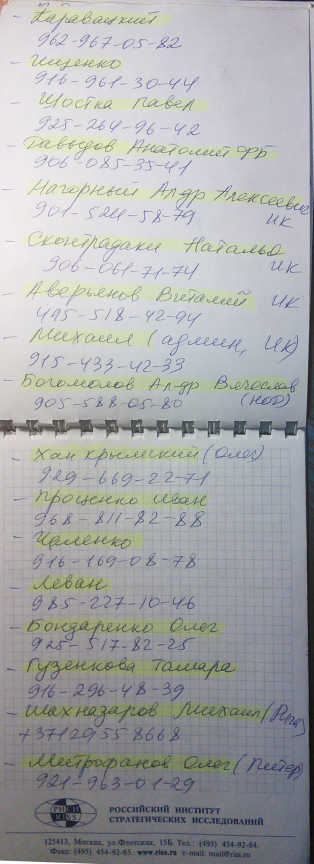 - Каравацкий
962-967-05-82
- Ищенко
916-961-30-44
- Шостка Павел
925-264-96-42
- Давыдов Анатолий ФБ
906-085-35-41
- Нагорный Ал-др Алексеевич
901-524-58-79 ИК
- Сконтрадаки Наталья
906-061-71-74 ИК
- Аверьянов Виталий ИК
495-518-42-94
- Михаил (админ, ИК)
915-433-42-33
- Богомолов Ал-др Вячеслав
905-588-05-80 (НОД)
- Хан крымский (Олег)
929-669-22-71
- Проценко Иван
968-811-82-88
- Цаленко
916-169-08-78
- Леван
985-227-10-46
- Бондаренко Олег
925-517-82-25
- Гузенкова Тамара
916-296-48-39
- Шахназаров Михаил (Рига)
+37129558668
- Митрофанов Олег (Питер)
921-963-01-29
РОССИЙСКИЙ ИНСТИТУТ
СТРАТЕГИЧЕСКИХ ИССЛЕДОВАНИЙ
125413, Москва, ул.Флотская, 15Б Тел.: (495) 454-92-64.
Факс: (495) 454-92-65. www.riss.ru e-mail: mail@riss.ru